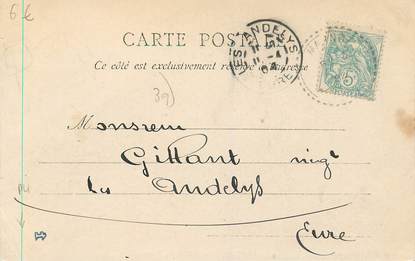 6 €
CARTE POSTALE
Ce côté est exclusivement réservé à l'adresse
LES ANDELYS
EURE
39
Monsieur
Gittant nég^t
Les Andelys
Eure